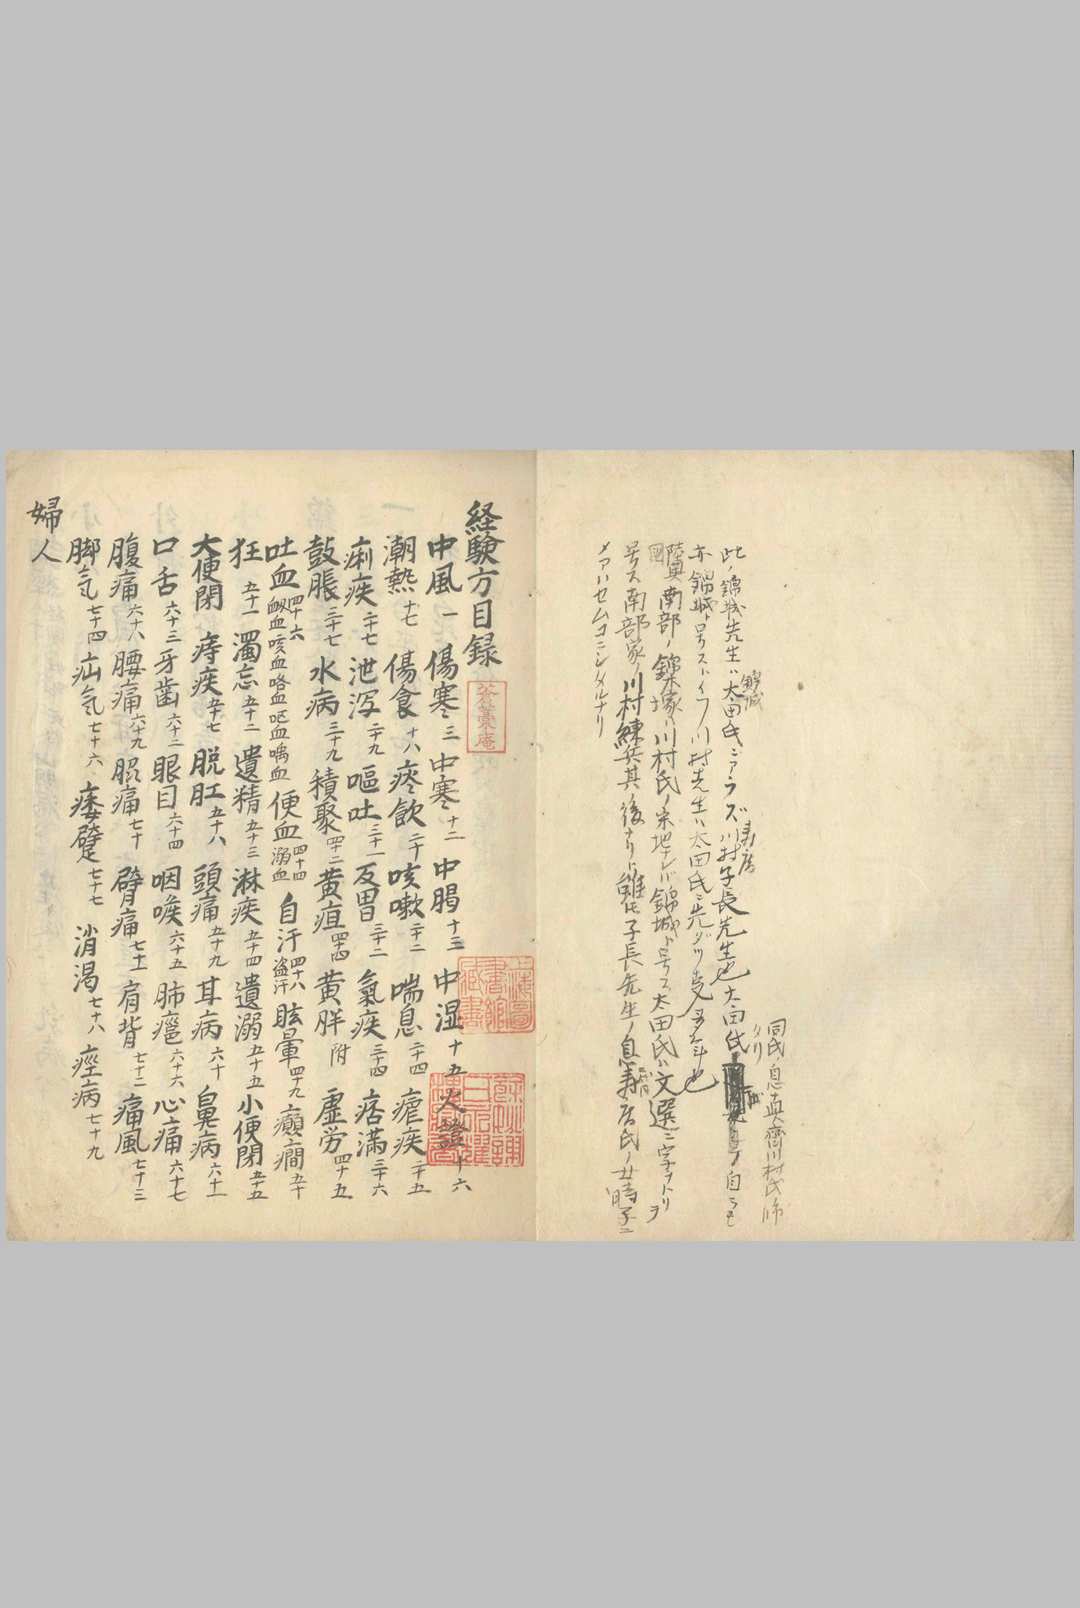 此ノ錦城先生ハ大田氏ニアラズ川村子長先生也大田氏
亦錦城ト号ストイフ川村先生ハ太田氏ニ先ダツ
陸奥國南部ノ錦塚ハ川村氏ノ采地ナレバ錦城ト号ス太田氏ハ文選ニ字ヲトリ
号ス南部家ノ川村練兵其ノ後ナリト雖モ子長先生ノ息寿庵氏ノ女時子ニ
メアハセムコニシタルナリ
経験方目録
中風一 傷寒三 中寒十二 中暍十三 中湿十五 火證十六
潮熱十七 傷食十八 痰飲二十 咳嗽二十二 喘息二十四 瘧疾二十五
痢疾二十七 泄瀉二十九 嘔吐三十一 反胃三十二 氣疾三十四 痞満三十六
鼓脹三十七 水病三十九 積聚四十二 黄疸四十四 黄胖附 虚労四十五
吐血四十六 衂血 咳血 咯血 嘔血 喘血 便血四十四 溺血 自汗四十八 盗汗 眩暈四十九 癲癇五十
狂五十一 濁忘五十二 遺精五十三 淋疾五十四 遺溺五十五 小便閉五十五
大便閉 痔疾五十七 脱肛五十八 頭痛五十九 耳病六十 鼻病六十一
口舌六十三 牙歯六十二 眼目六十四 咽喉六十五 肺癰六十六 心痛六十七
腹痛六十八 腰痛六十九 腿痛七十 臂痛七十一 肩背七十二 痛風七十三
脚気七十四 疝気七十六 痿躄七十七 消渇七十八 痙病七十九
婦人